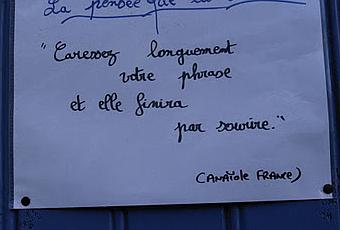 La pensée que la
"Caressez longuement
votre phrase
et elle finira
par sourire."
(ANATole FRANCE)